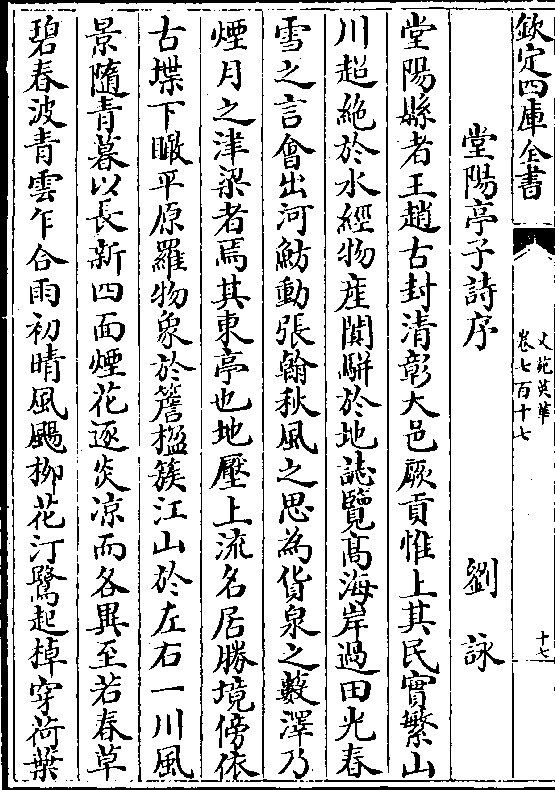 欽定四庫全書
文苑英華
卷七百十七
十七
堂陽亭子詩序
劉詠
堂陽縣者王趙古封清彰大邑厥貢惟上其民實繁山
川超絶於水經物産闐駢於地誌覽髙海岸過田光春
雪之言會出河魴動張翰秋風之思為貨泉之藪澤乃
煙月之津梁者焉其東亭也地壓上流名居勝境傍依
古堞下瞰平原羅物象於簷楹簇江山於左右一川風
景隨青暮以長新四面煙花逐炎凉而各異至若春草
碧春波青雲乍合雨初晴風颺柳花汀鷺起棹穿荷葉